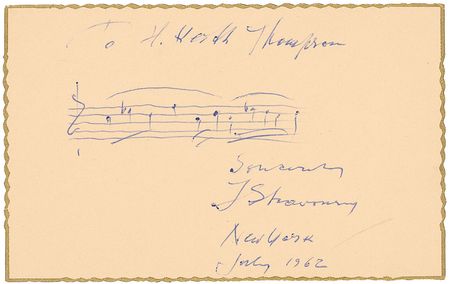 To H. Heath Thompson
Sincerely
I Stravinsky
New York
July 1962